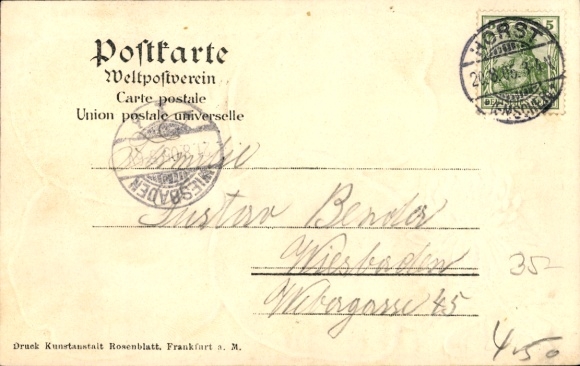 Postkarte
Weltpostverein
Carte postale
Union postale universelle
5
HÖRST
WIESBADEN
Familie
Gustav Bender
Wiesbaden
Webergasse 45
35-
4.50
Druck Kunstanstalt Rosenblatt, Frankfurt a. M.